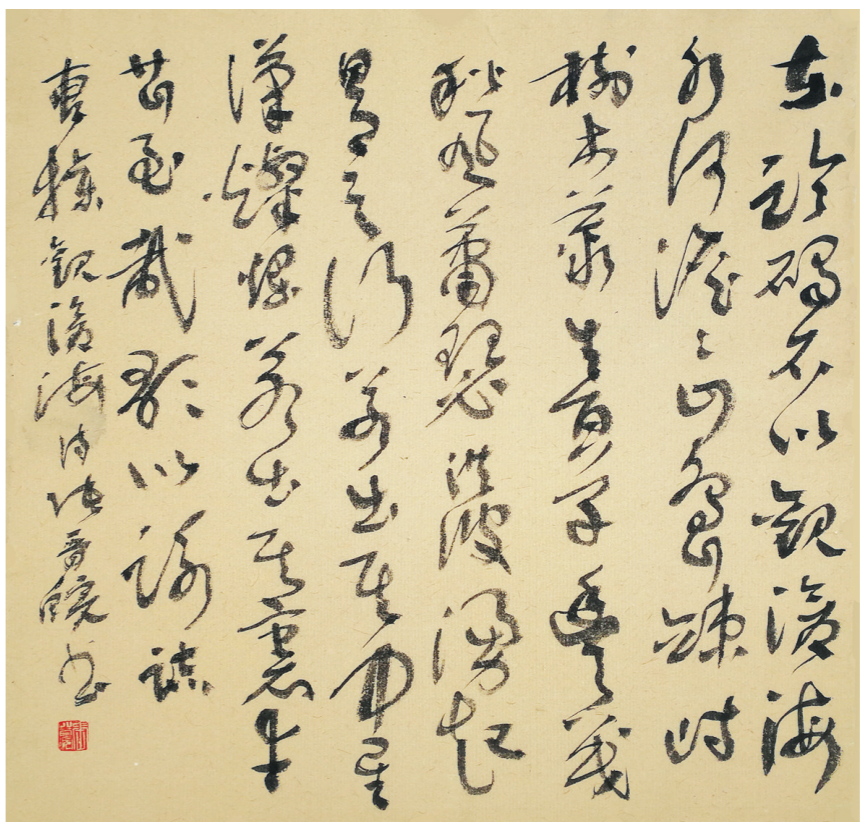 東臨碣石以觀滄海
水何澹々山島竦峙
樹木叢生百草豐茂
秋風蕭瑟洪波湧起
日月之行若出其中星
漢燦爛若出其裏幸
甚至哉歌以詠誌
曹操觀滄海詩張書